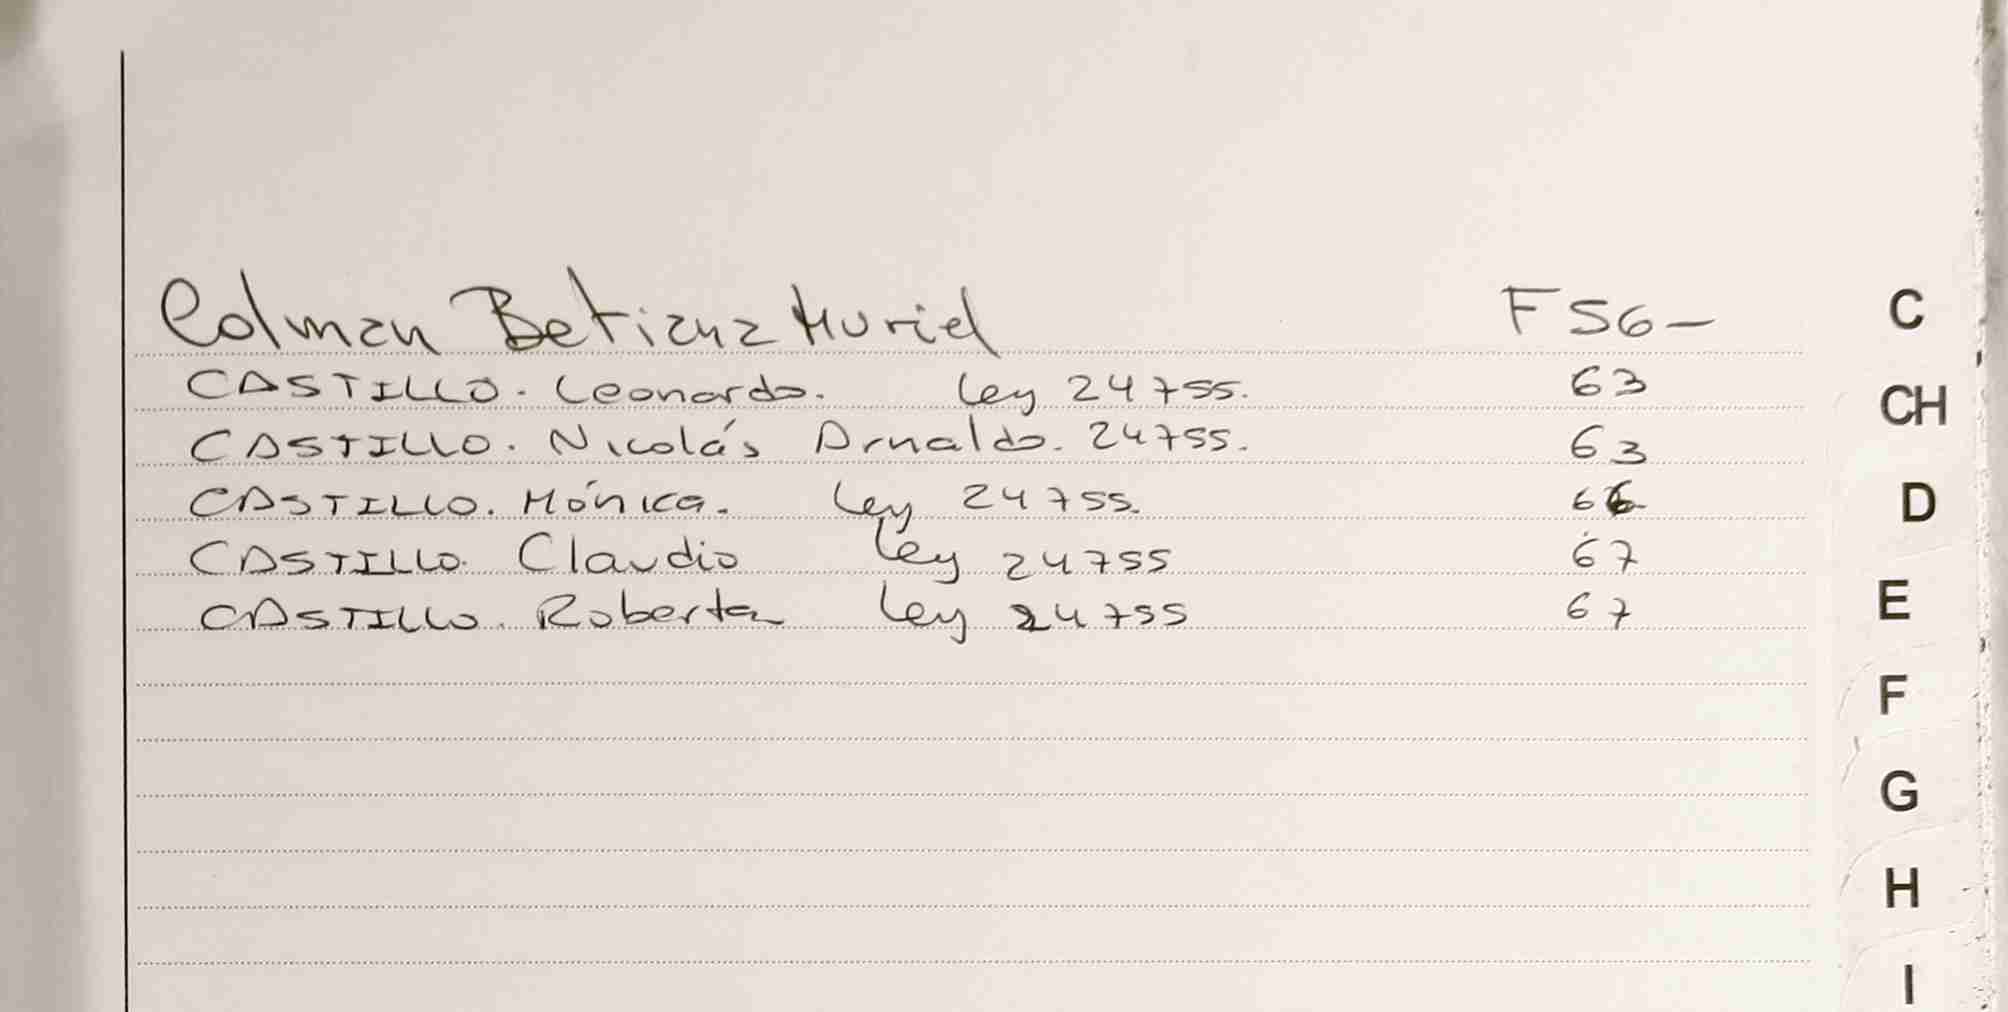 Colman Betiana Muriel F 56 - C
CASTILLO. Leonardo. Ley 24755. 63
CH
CASTILLO. Nicolás Arnaldo. 24755. 63
CASTILLO. Mónica. Ley 24755. 66 D
CASTILLO. Claudio Ley 24755 67
CASTILLO. Roberta Ley 24755 67 E
F
G
H
I